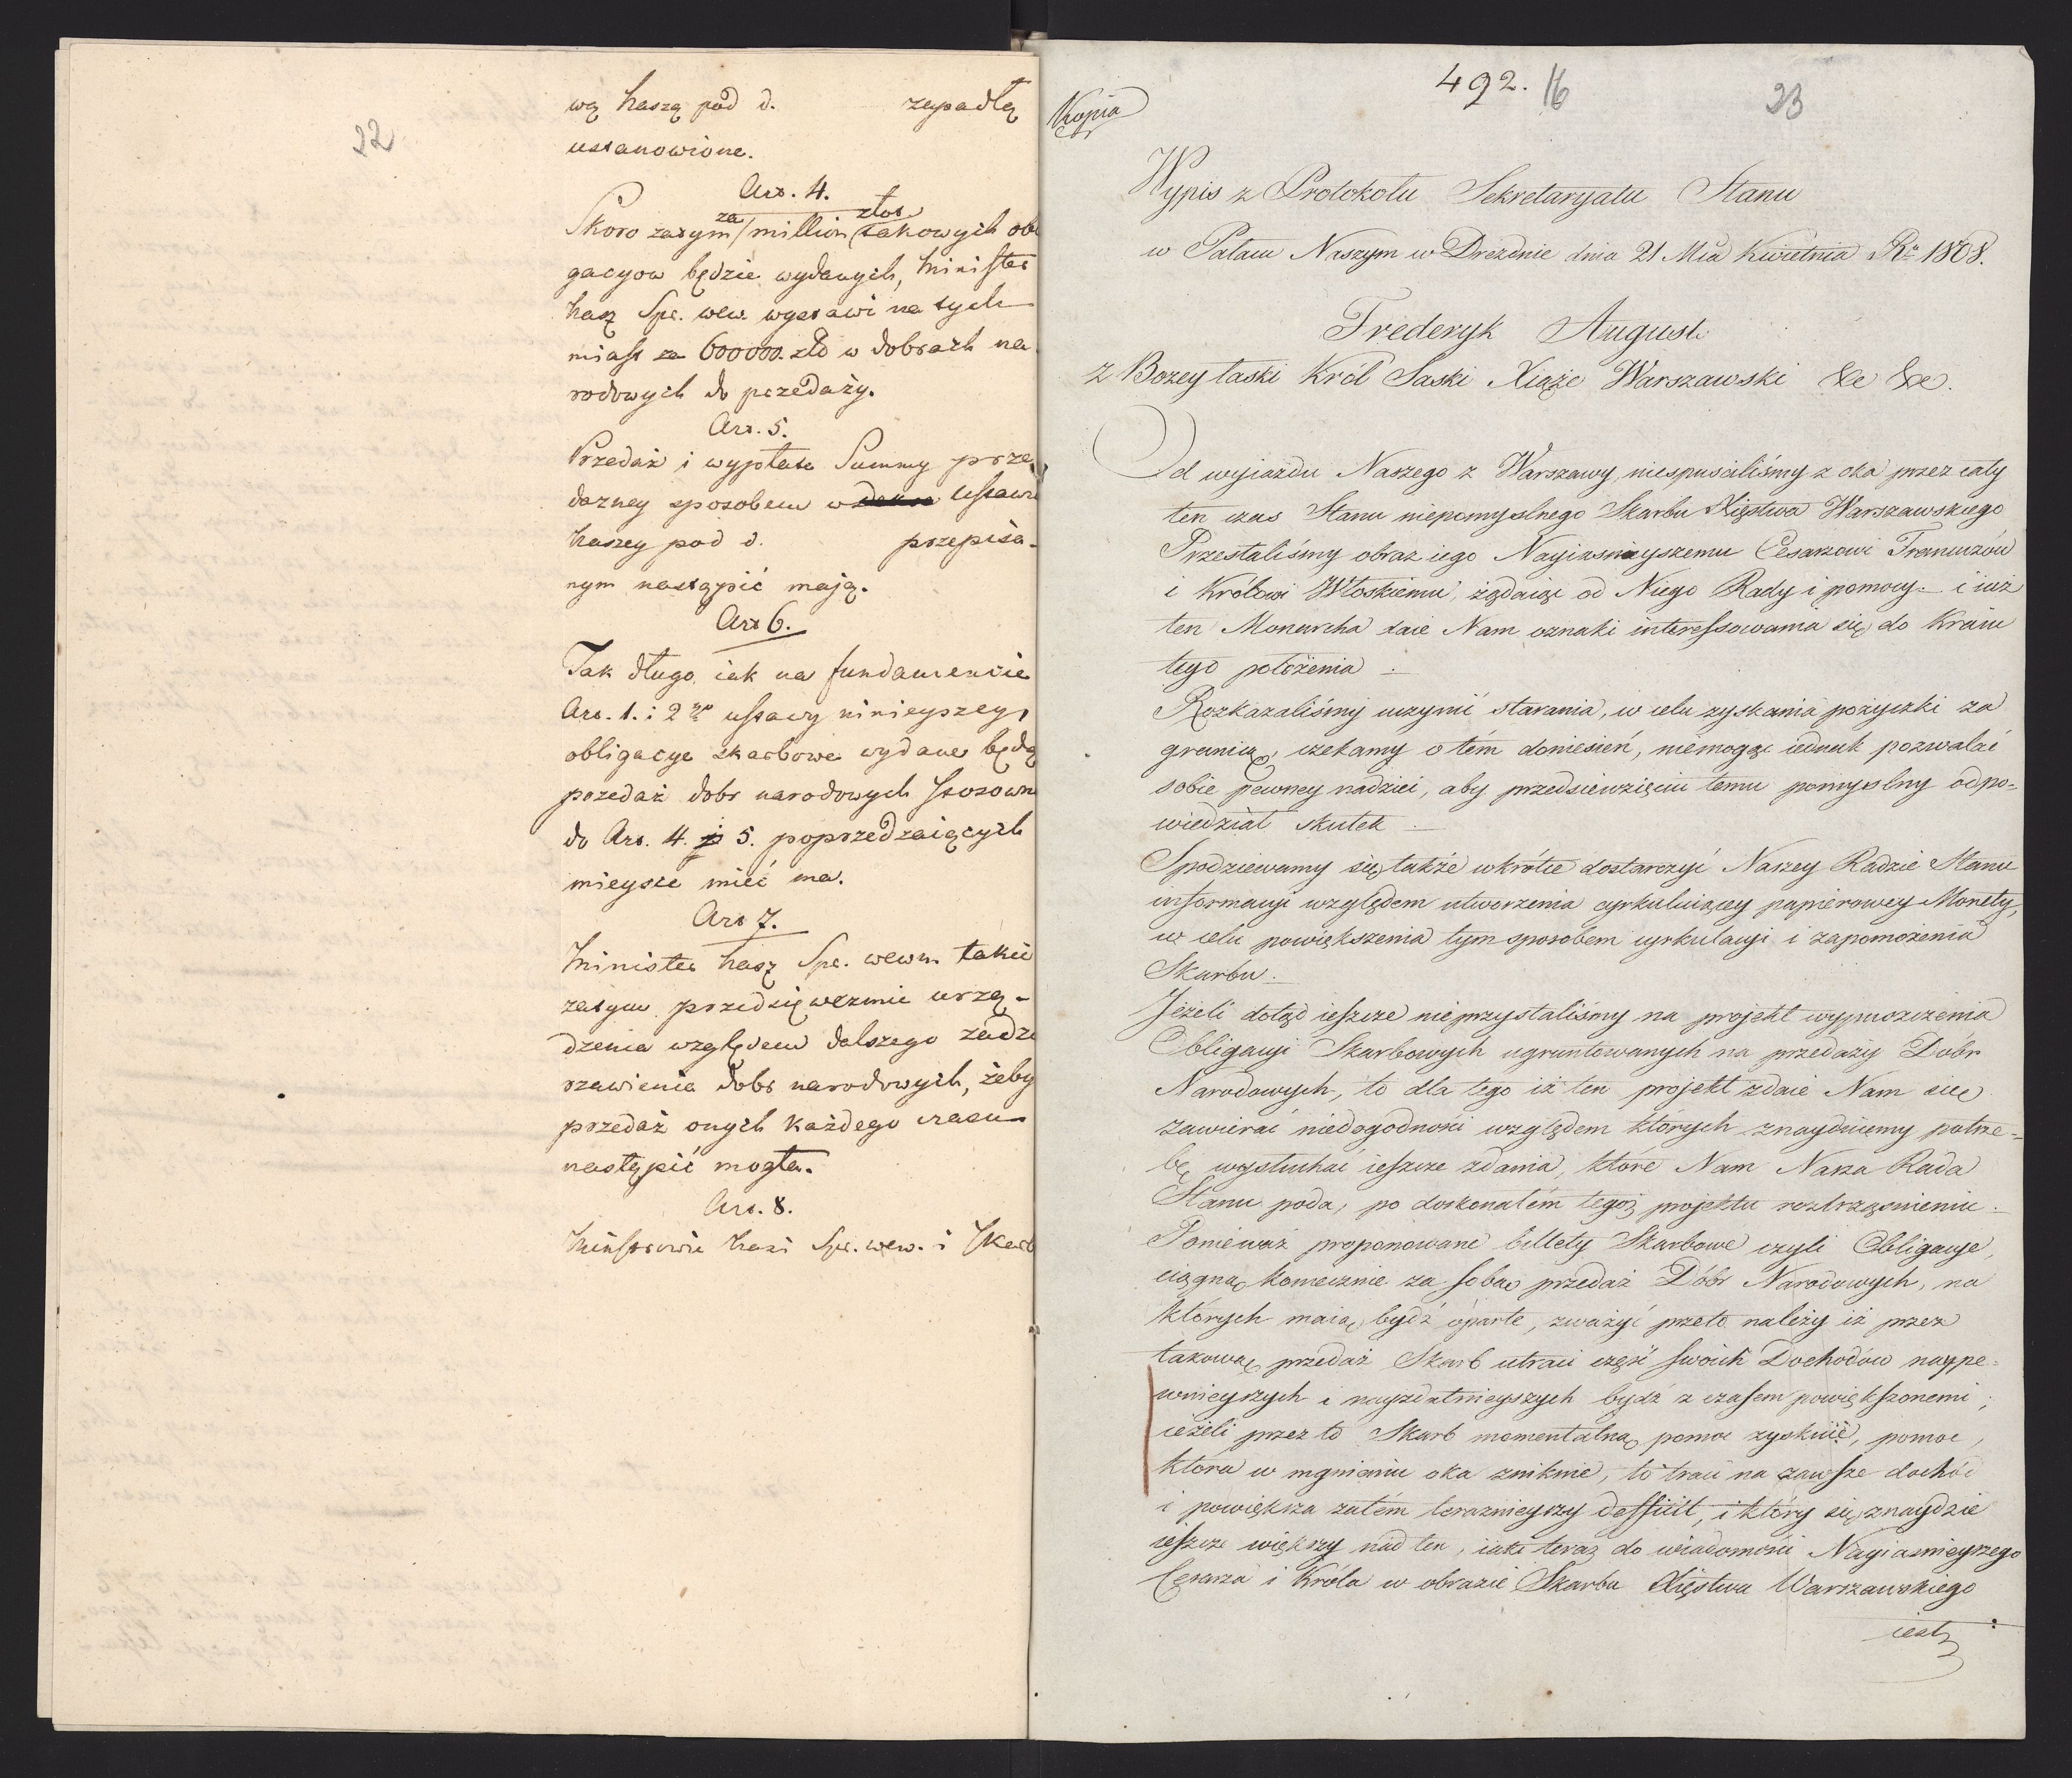 22
wą Naszą pod d. zapadłą
ustanowione.
Art. 4.
za złot.
Skoro zatym million takowych obli
gacyow będzie wydanych, Minister
Nasz Spr. wew. wystawi na tych
miast za 600000 złt w dobrach na
rodowych do przedaży.
Art. 5.
Przedaż i wypłata Summy prze
dażney sposobem w Ustawie
Naszey pod d. przepisa-
nym nastąpić mają.
Art 6.
Tak długo iak na fundamencie
Art. 1. i 2go ustawy ninieyszey,
obligacye skarbowe wydane będą
przedaż dobr narodowych stosown
do Art. 4. i 5. poprzedzaiących
mieysce mieć ma.
Art 7.
Minister Nasz Spr. wewn. takie
zatym przedsięweźmie urzą-
dzenia względem dalszego zadzi
rzawienia dobr narodowych, żeby
przedaż onych każdego czasu
nastąpić mogła.
Art. 8.
Ministrowie Nasi Spr. wew. i Skarb
492. 16 23
Kopia
Wypis z Protokołu Sekretaryatu Stanu
w Pałacu Naszym w Dreźnie dnia 21 Mca Kwietnia Ru 1808.
Frederyk August
z Bożey łaski Król Saski Xiąże Warszawski &c &c.
Od wyiazdu Naszego z Warszawy, niespuściliśmy z oka przez cały
ten czas Stanu niepomyslnego Skarbu Xięstwa Warszawskiego
Przesłaliśmy obraz iego Nayiaśnieyszemu Cesarzowi Francuzów
i Królowi Włoskiemu, żądaiąc od Niego Rady i pomocy. i iuż
ten Monarcha daie Nam oznaki interessowania się do Kraiu
tego położenia.
Rozkazaliśmy uczynić starania, w celu zyskania pożyczki za
granicą, czekamy o tém doniesień, niemogąc iednak pozwalać
sobie pewney nadziei, aby przedsiewzięciu temu pomyslny odpo-
wiedział skutek.
Spodziewamy się także wkrótce dostarczyć Naszey Radzie Stanu
informacyi względem utworzenia cyrkuluiącey papierowey Monety,
w celu powiększenia tym sposobem cyrkulacyi i zapomożenia
Skarbu.
Jeżeli dotąd ieszcze nieprzystaliśmy na projekt wypuszczenia
Obligacyi Skarbowych ugruntowanych na przedaży Dobr
Narodowych, to dla tego iż ten projekt zdaie Nam się
zawierać niedogodności względem których znayduiemy potrze-
bę wysłuchać ieszcze zdania, które Nam Nasza Rada
Stanu poda, po doskonałém tegoż projektu roztrząśnieniu.
Ponieważ proponowane billety Skarbowe czyli Obligacye,
ciągną koniecznie za sobą przedaż Dóbr Narodowych, na
których maią bydź oparte, zważyć przeto należy iż przez
takową przedaż Skarb utraci część swoich Dochodów naype-
wnieyszych i nayzdatnieyszych bydź z czasem powiększonemi;
ieżeli przez to Skarb momentalną pomoc zyskuie, pomoc,
która w mgnieniu oka zniknie, to traci na zawsze dochód
i powiększa zatém teraznieyszy defficit, i który się znaydzie
ieszcze większy nad ten, iaki teraz do wiadomości Nayiaśnieyszego
Cesarza i Króla w obrazie Skarbu Xięstwa Warszawskiego
iest